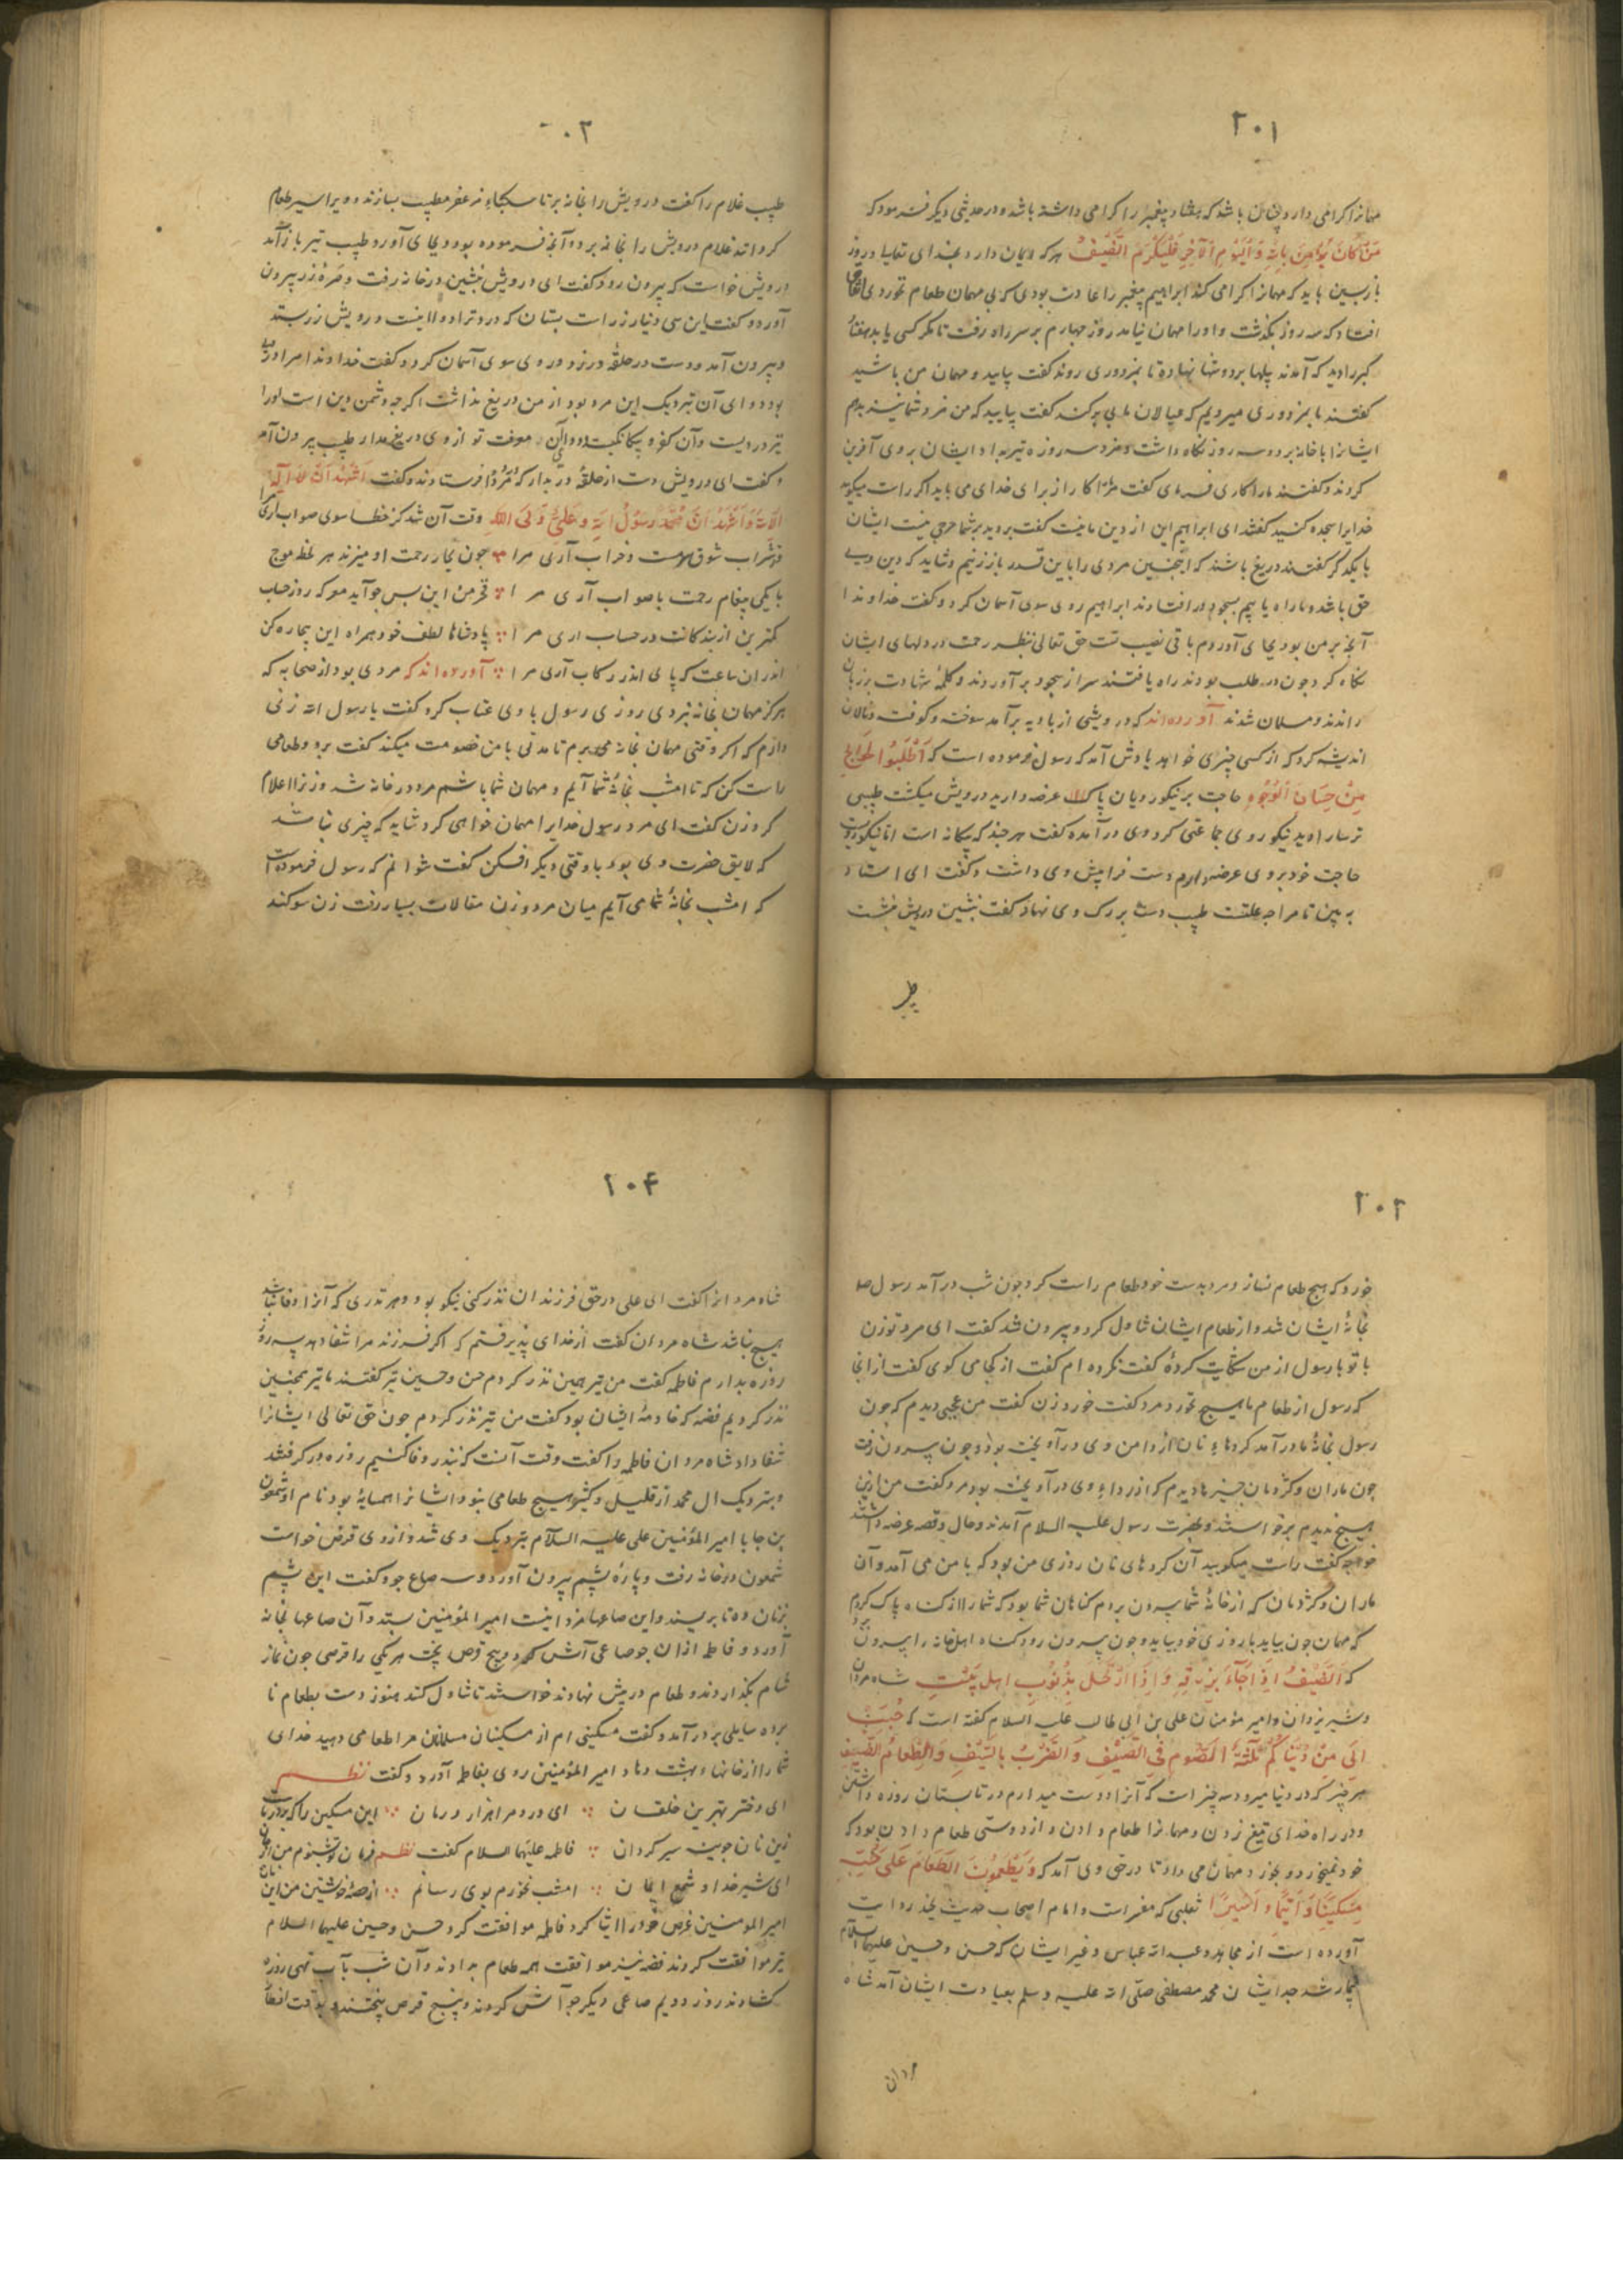 ۲۰۱
مهمانرا کرامی دارد چنان باشد که هفتاد پیغمبر را کرامی داشته باشد و در حدیثی دیکر فرمود که
مَنْ کَانَ یُؤْمِنُ بِاللّٰهِ وَالْیَوْمِ الْآخِرِ فَلْیُکْرِمِ الضَّیْفَ هر که ایمان دارد بخدای تعالی و بروز
بازپسین باید که مهمانرا کرامی کند ابراهیم پیغمبر را عادت بودی که بی مهمان طعام نخوردی اتفاق
افتاد که سه روز بگذشت و او را مهمان نیامد روز چهارم بر سر راه رفت تا مکر کسی یابد هفتاد
کبر را دید که آمدند بیلها بر دوشها نهاده تا بمزدوری روند گفت بیایید و مهمان من باشید
گفتند ما بمزدوری میرویم که عیالان ما بی برکند گفت بیایید که من مزد شما نیز بدهم
ایشانرا با خانه برد و سه روز نکاه داشت و مزد سه روزه نیز بداد ایشان بر وی آفرین
کردند و گفتند ما را کاری فرمای گفت مرا کار از برای خدای می باید اکر راست میکویید
خدایرا سجده کنید گفتند ای ابراهیم این از دین ما نیست گفت بروید بر شما حرجی نیست ایشان
با یکدکر گفتند دریغ باشد که اینچنین مردی را باین قدر باز زنیم و شاید که دین وی
حق باشد و ما راه یابیم بسجود در افتادند ابراهیم روی سوی آسمان کرد و گفت خداوندا
آنچه بر من بود بجای آوردم باقی نصیب تست حق تعالی بنظر رحمت در دلهای ایشان
نکاه کرد چون در طلب بودند راه یافتند سر از سجود بر آوردند و کلمهٔ شهادت بر زبان
راندند و مسلمان شدند آورده‌اند که درویشی از بادیه بر آمد سوخته و کوفته و نالان
اندیشه کرد که از کسی چیزی خواهد یادش آمد که رسول فرموده است که اُطْلُبُوا الْحَوَائِجَ
مِنْ حِسَانِ الْوُجُوهِ حاجت بر نیکو رویان پاک عرضه دارید درویش میکشت طبیبی
ترسا را دید نیکو روی جماعتی کرد وی در آمده گفت هر چند که بیکانه است اما نیکو رویست
حاجت خود بر وی عرضه دارم دست فرا پیش وی داشت و گفت ای استاد
به بین تا مرا چه علتست طبیب دست بر رک وی نهاد گفت بنشین درویش بنشست
طبیب
۲۰۲
طبیب غلام را گفت درویش را بخانه بر تا سکباء مزعفر مطیب بسازند و ویرا سیر طعام
کردانند غلام درویش را بخانه برد و آنچه فرموده بود بجای آورد و طبیب نیز باز آمد
درویش خواست که بیرون رود گفت ای درویش بنشین در خانه رفت و صرهٔ زر بیرون
آورد و گفت این سی دینار زر است بستان که درد ترا دوا اینست درویش زر بستد
و بیرون آمد و دست در حلقهٔ در زد و روی سوی آسمان کرد و گفت خداوندا مرا درد
بود دوای آن نزدیک این مرد بود از من دریغ نداشت اکر چه دشمن دین است او را
نیز دردیست و آن کفر و بیکانکیست و دوای آن معرفت تو از وی دریغ مدار طبیب بیرون آمد
و گفت ای درویش دست از حلقهٔ در بدار که مزد را فرستادند و گفت اَشْهَدُ اَنْ لَا اِلٰهَ
اِلَّا اللّٰهُ وَاَشْهَدُ اَنَّ مُحَمَّدًا رَسُولُ اللّٰهِ وَعَلِیٌّ وَلِیُّ اللّٰهِ وقت آن شد کز خطا سوی صواب آری مرا
وز شراب شوق مست و خراب آری مرا چون بحار رحمت او میزند هر لحظه موج
با یکی پیغام رحمت با صواب آری مرا فخر من این بس جو آید مو که روز حساب
کمترین از بندکانت در حساب آری مرا پادشاها لطف خود همراه این بیچاره کن
اندر آن ساعت که پای اندر رکاب آری مرا آورده‌اند که مردی بود از صحابه که
هرکز مهمان بخانه نبردی روزی رسول با وی عتاب کرد گفت یا رسول الله زنی
دارم که اکر وقتی مهمان بخانه می برم تا مدتی با من خصومت میکند گفت برو و طعامی
راست کن که تا امشب بخانهٔ شما آیم و مهمان شما باشم مرد در خانه شد و زنرا اعلام
کرد زن گفت ای مرد رسول خدایرا مهمان خواهی کرد شاید که چیزی نباشد
که لایق حضرت وی بود با وقتی دیکر افکن گفت نتوانم که رسول فرموده است
که امشب بخانهٔ شما می آیم میان مرد و زن مقالات بسیار رفت زن سوکند
۲۰۳
خورد که هیچ طعام نسازد مرد بدست خود طعام راست کرد چون شب در آمد رسول صلعم
بخانهٔ ایشان شد و از طعام ایشان تناول کرد و بیرون شد گفت ای مرد تو زن
با تو با رسول از من شکایت کردهٔ گفت نکرده ام گفت از کجا می کوی گفت از انجا
که رسول از طعام ما هیچ نخورد مرد گفت خورد زن گفت من عجبی دیدم که چون
رسول بخانهٔ ما در آمد کردهای نان از دامن وی در آویخته بود و چون بیرون رفت
چون ماران و کژدمان چیزها دیدم که از رداء وی در آویخته بود مرد گفت من ازین
هیچ ندیدم برخواستند و بحضرت رسول علیه السلام آمدند و حال و قصه عرضه داشتند
خواجه گفت راست میکویید آن کردهای نان روزی من بود که با من می آمد و آن
ماران و کژدمان که از خانهٔ شما بیرون بردم کناهان شما بود که شما را از کناه پاک کردم
که مهمان چون بیاید با روزی خود بیاید و چون بیرون رود کناه اهل خانه را بیرون برد
که اَلضَّیْفُ اِذَا جَآءَ بِرِزْقِهِ وَاِذَا ارْتَحَلَ بِذُنُوبِ اهل بَیْتِ شاه مردان
و شیر یزدان و امیر مؤمنان علی بن ابی طالب علیه السلام گفته است که حُبِّبَ
اِلَیَّ مِنْ دُنْیَاکُمْ ثَلٰثَةٌ الصَّوْمُ فِی الصَّیْفِ وَالضَّرْبُ بِالسَّیْفِ وَالطَّعَامُ الضَّیْفِ
هر چیز که در دنیا میرود سه چیز است که آنرا دوست میدارم در تابستان روزه داشتن
و در راه خدای تیغ زدن و مهمانرا طعام دادن و از دوستی طعام دادن بود که
خود نمیخورد و بخورد مهمان می داد تا در حق وی آمد که وَیُطْعِمُونَ الطَّعَامَ عَلٰی حُبِّهِ
مِسْکِینًا وَیَتِیمًا وَاَسِیرًا ثعلبی که مفسر است و امام اصحاب حدیث بخدر روایت
آورده است از مجاهد و عبدالله عباس و غیر ایشان که حسن و حسین علیهما السلام
بیمار شد جد ایشان محمد مصطفی صلّی الله علیه وسلم بعیادت ایشان آمد شاه
مردان
۲۰۴
شاه مردانرا گفت ای علی در حق فرزندان نذر کنی نیکو بود و هر نذری که آنرا وفا نباشد
هیچ نباشد شاه مردان گفت از خدای پذیرفتم که اکر فرزند مرا شفا دهد سه روز
روزه بدارم فاطمه گفت من نیز همین نذر کردم حسن و حسین نیز گفتند ما نیز همچنین
نذر کردیم فضه که خادمهٔ ایشان بود گفت من نیز نذر کردم چون حق تعالی ایشانرا
شفا داد شاه مردان فاطمه را گفت وقت آنست که بنذر وفا کنیم روزه در کرفتند
و بنزدیک ال محمد از قلیل و کثیر هیچ طعامی نبود و ایشانرا همسایهٔ بود نام او شمعون
بن جابا امیر المؤمنین علی علیه السلام بنزدیک وی شد و از وی قرض خواست
شمعون در خانه رفت و پارهٔ پشم بیرون آورد و سه صاع جو و گفت این پشم
بزنان ده تا بریسند و این صاعها مزد اینست امیر المؤمنین بستد و آن صاعها بخانه
آورد و فاطمه ازان جو صاعی آش کرد و پنج قرص پخت هر یکی را قرصی چون نماز
شام بکذاردند و طعام در پیش نهادند خواستند تا تناول کنند هنوز دست بطعام نا
برده سایلی بر در آمد و گفت مسکینی ام از مسکینان مسلمانان مرا طعامی دهید خدای
شما را از خانها بهشت دهاد امیر المؤمنین روی بفاطمه آورد و گفت نظم
ای دختر بهترین خلقان ای درد مرا بزار درمان این مسکین را که بر در ماست
زین نان جوین سیر کردان فاطمه علیها السلام گفت نظم فرمان تو بشنوم من از جان
ای شیر خدا و شمع ایمان امشب نخورم بوی رسانم از حصهٔ خویشتن من این نان
امیر المومنین قرص خود را ایثار کرد فاطمه موافقت کرد حسن و حسین علیهما السلام
نیز موافقت کردند فضه نیز موافقت همه طعام بدادند و آن شب بآب تهی روزه
کشادند روز دویم صاعی دیکر جو آش کردند و پنج قرص پختند و بوقت افطار